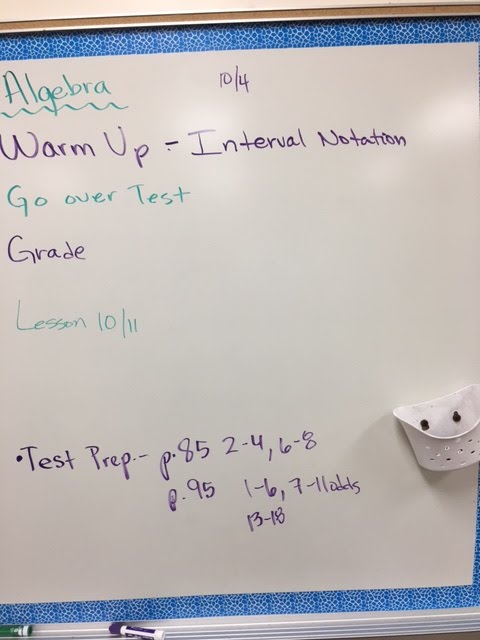 Algebra 10/4
Warm Up - Interval Notation
Go over Test
Grade
Lesson 10/11
• Test Prep - p.85 2-4, 6-8
p.95 1-6, 7-11 odds
13-18